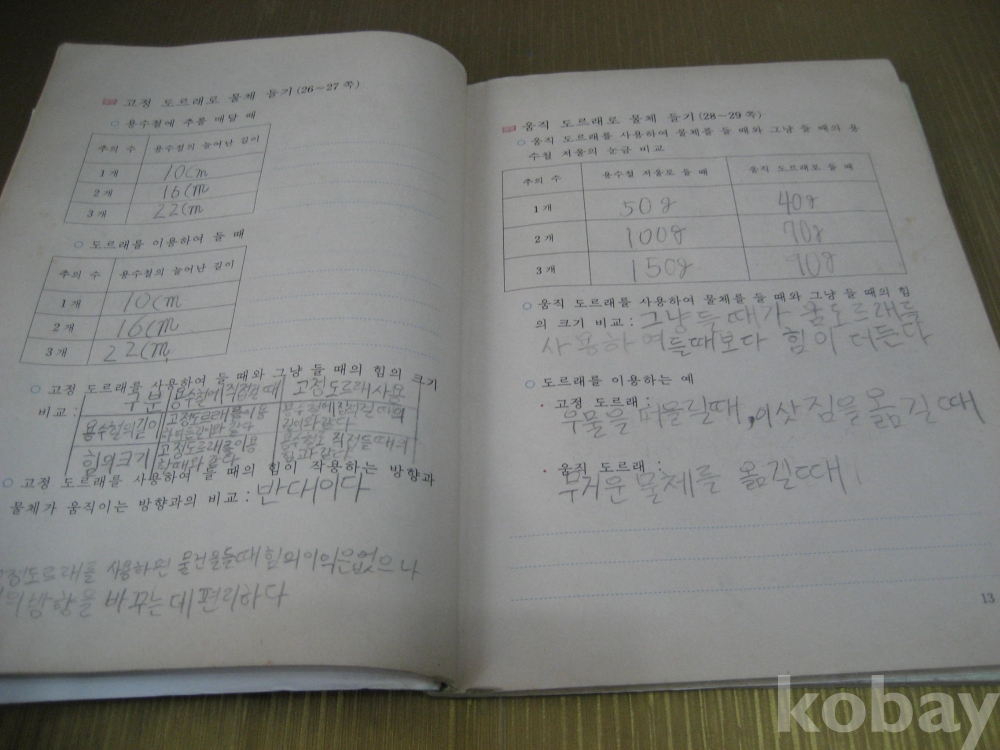 고정 도르래로 물체 들기(26~27 쪽)
용수철에 추를 매달 때
추의 수 용수철의 늘어난 길이
1 개 10cm
2 개 16cm
3 개 22cm
도르래를 이용하여 들 때
추의 수 용수철의 늘어난 길이
1 개 10cm
2 개 16cm
3 개 22cm
고정 도르래를 사용하여 들 때와 그냥 들 때의 힘의 크기
비교 : 구분 용수철에 직접 들 때 고정도르래 사용
용수철의 길이 고정도르래를 이용
길이와 같다
힘의 크기 고정도르래를 이용
할때와 같다
고정 도르래를 사용하여 들 때의 힘이 작용하는 방향과
물체가 움직이는 방향과의 비교 : 반대이다
고정도르래를 사용하면 물건을들때 힘의이익은없으나
힘의방향을 바꾸는데편리하다
움직 도르래로 물체 들기(28~29 쪽)
움직 도르래를 사용하여 물체를 들 때와 그냥 들 때의 용
수철 저울의 눈금 비교
추의 수 용수철 저울로 들 때 움직 도르래로 들 때
1 개 50g 40g
2 개 100g 70g
3 개 150g 90g
움직 도르래를 사용하여 물체를 들 때와 그냥 들 때의 힘
의 크기 비교 : 그냥들때가 움도르래를
사용하여들때보다 힘이 더든다
도르래를 이용하는 예
· 고정 도르래 :
우물을 퍼올릴때, 이삿짐을 옮길때
· 움직 도르래 :
무거운 물체를 옮길때
13
kobay